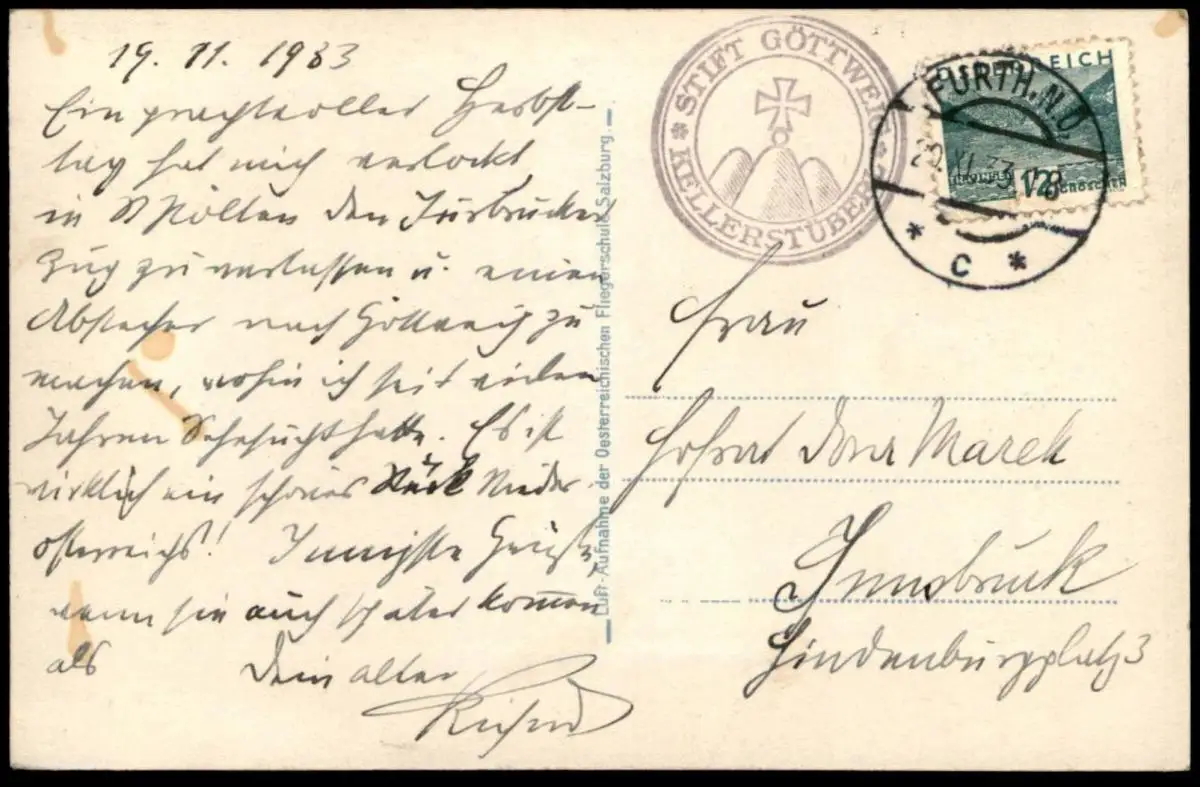 19. 11. 1933
Ein prachtvoller Herbst-
tag hat mich verlockt
in St Pölten den Insbrucker
Zug zu verlassen u. einen
Abstecher nach Göttweig zu
machen, wohin ich seit vielen
Jahren Sehnsucht hatte. Es ist
wirklich ein schönes Stück Nieder
österreichs! Innigste Grüße,
wenn sie auch später kommen
als Dein alter
Richard
Luft-Aufnahme der Oesterreichischen Fliegerschule Salzburg.
STIFT GÖTTWEIG
* KELLERSTÜBERL *
ÖSTERREICH
12 GROSCHEN
FURTH, N.Ö.
20.XI.33
* C *
Frau
Hofrat Dora Marek
Innsbruck
Hindenburgplatz 3